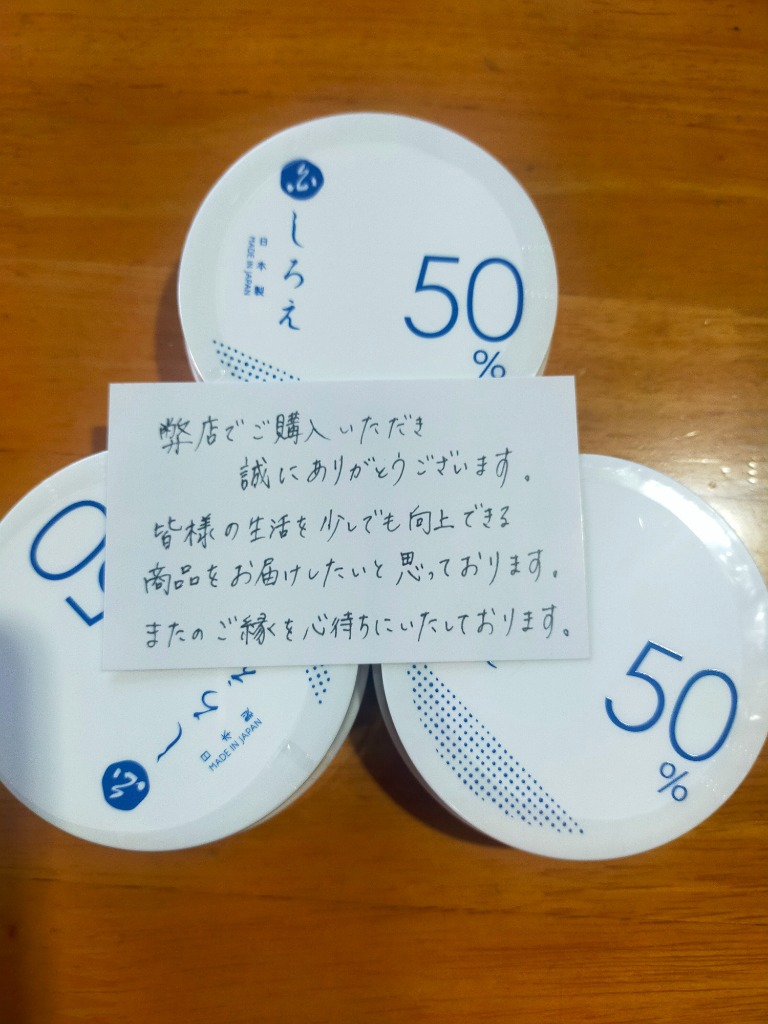 心
しろえ
日本製
MADE IN JAPAN
50
%
弊店でご購入いただき
誠にありがとうございます。
皆様の生活を少しでも向上できる
商品をお届けしたいと思っております。
またのご縁を心待ちにいたしております。
50
しろえ
日本製
MADE IN JAPAN
心
50
%